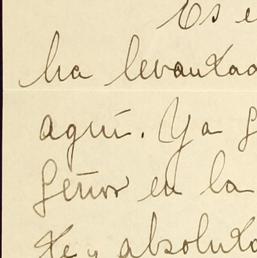 Es e
ha levantad
aquí. Ya g
Señor en la
te y absoluta